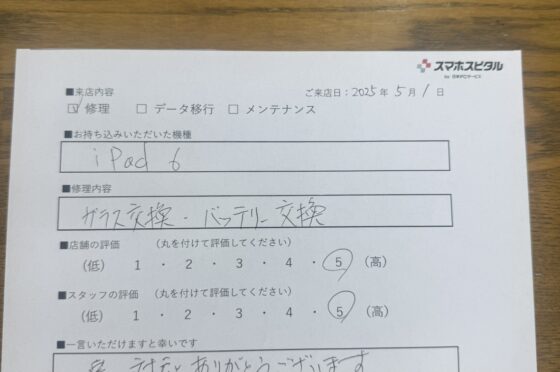 スマホスピタル
by 日本PCサービス
■来店内容
ご来店日：2025年 5月 1日
☑ 修理 □ データ移行 □ メンテナンス
■お持ち込みいただいた機種
iPad 6
■修理内容
ガラス交換・バッテリー交換
■店舗の評価 （丸を付けて評価してください）
（低） 1 ・ 2 ・ 3 ・ 4 ・ 5 （高）
■スタッフの評価 （丸を付けて評価してください）
（低） 1 ・ 2 ・ 3 ・ 4 ・ 5 （高）
■一言いただけますと幸いです
ありがとうございます